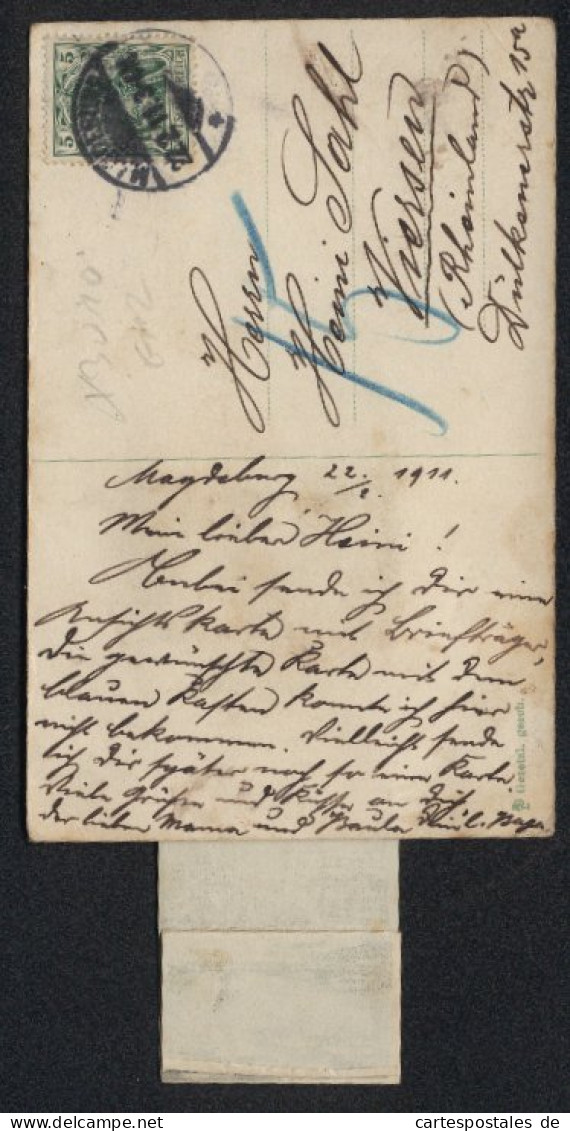 Herrn
Heini Sahl
Viersen
(Rheinland)
Dülkenerstr 15a
15
5
5
Magdeburg 22./2. 1911.
Mein lieber Heini!
Anbei sende ich Dir eine
Ansichtskarte mit Briefträger,
die gewünschte Karte mit dem
blauen Kasten konnte ich hier
nicht bekommen. Vielleicht sende
ich Dir später noch so eine Karte
Viele Grüße und Küsse an Dich
der lieben Mama und Paula Dein l. Papa
Gesetzl. gesch.
www.cartespostales.de
cartespostales.de